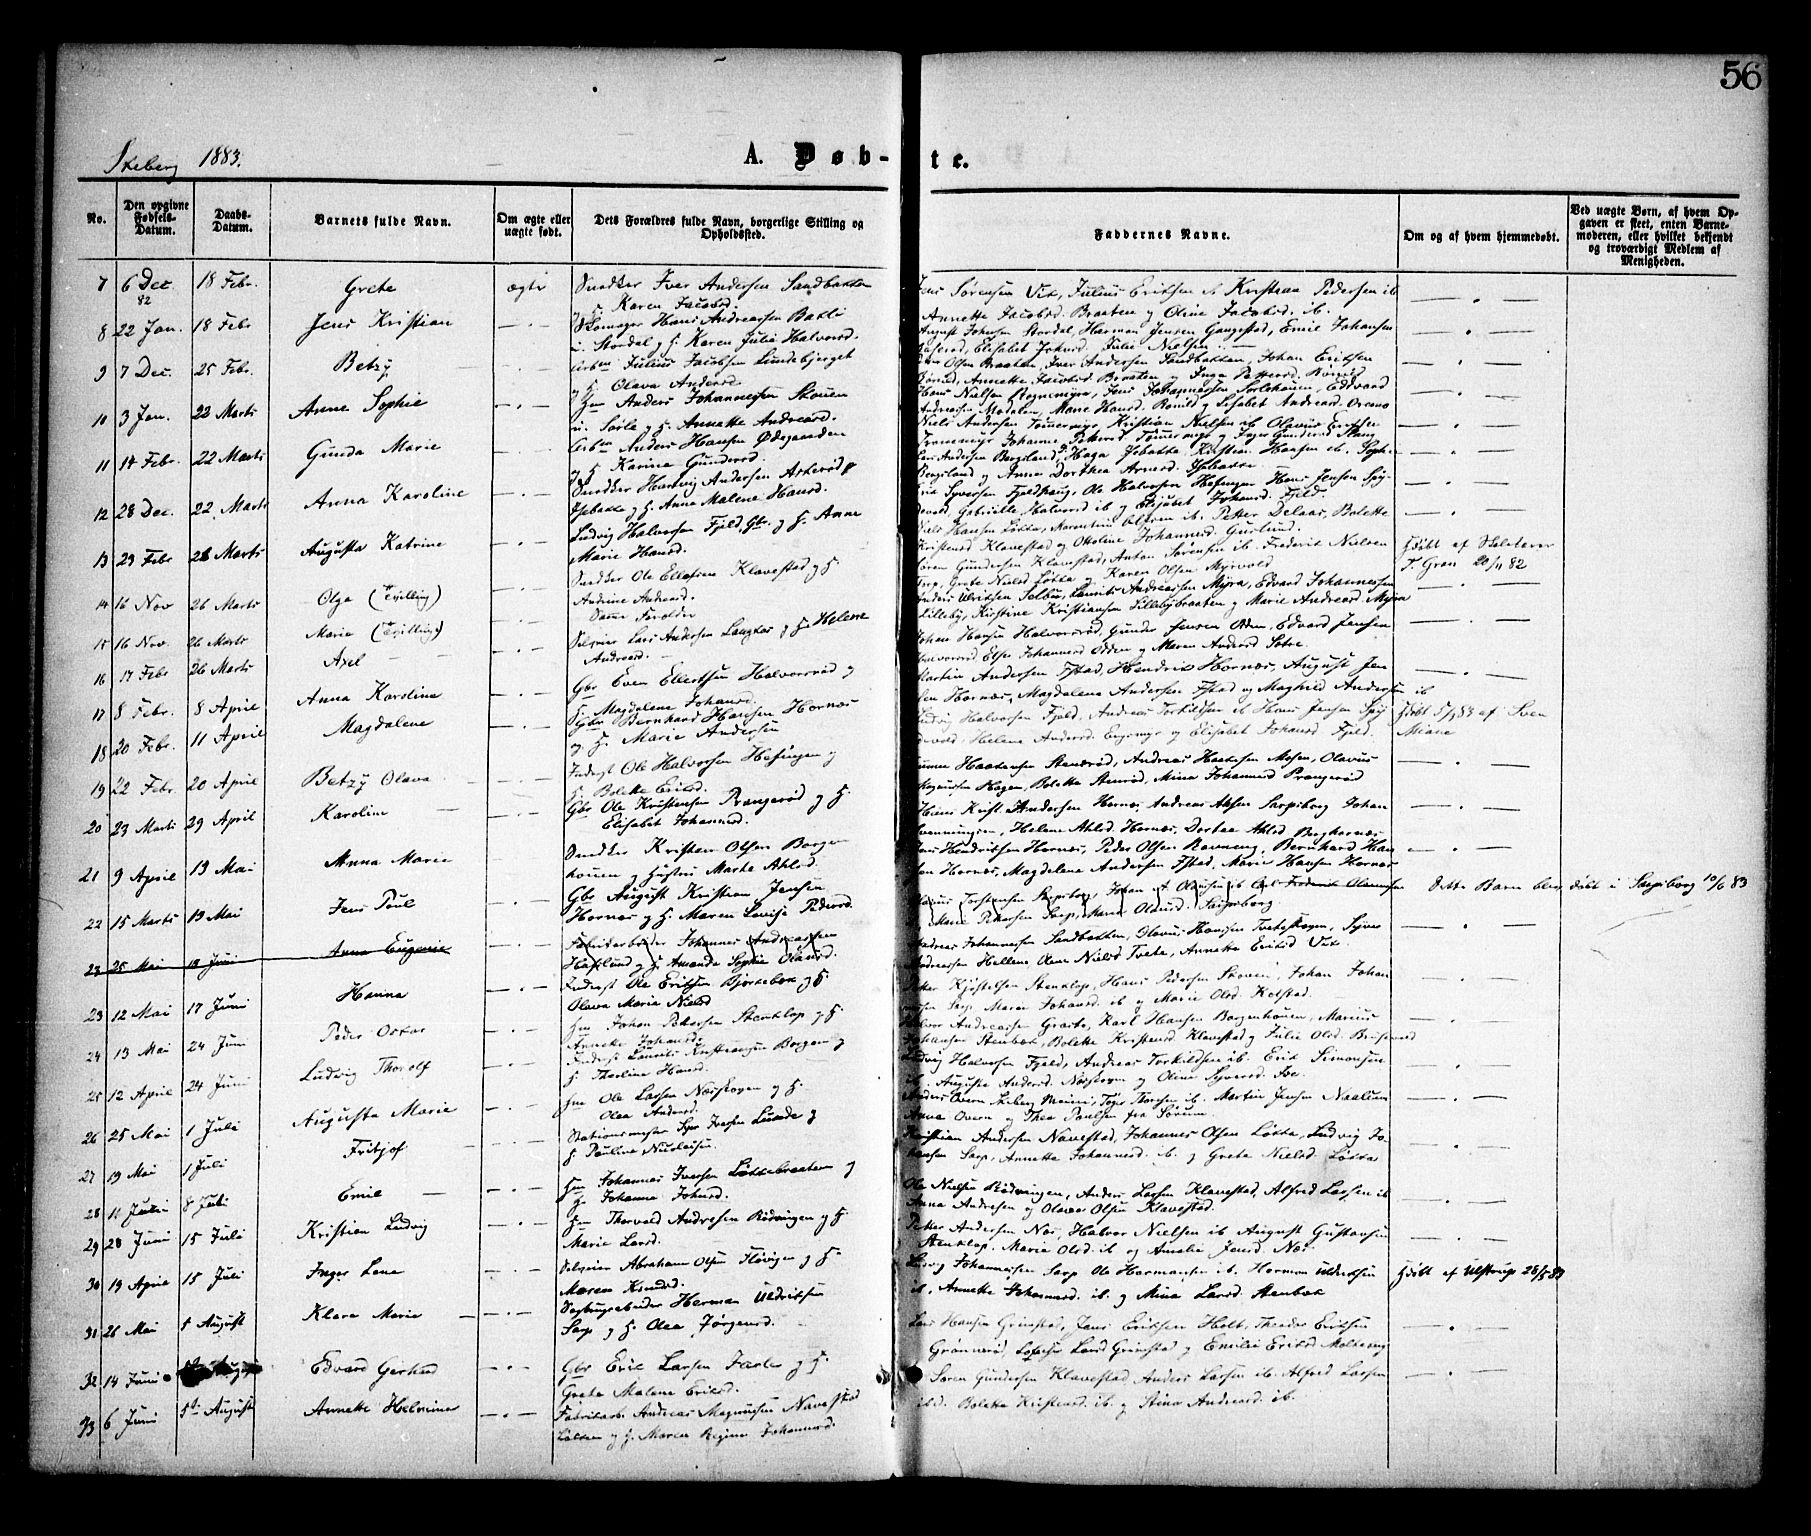 56
Skeberg 1883.
A. Døb-
te.
No.
Den opgivne Fødsels-Datum.
Daabs-Datum.
Barnets fulde Navn.
Om ægte eller uægte født.
Dets Forældres fulde Navn, borgerlige Stilling og Opholdssted.
Faddernes Navne.
Om og af hvem hjemmedøbt.
Ved uægte Børn, af hvem Opgaven er skeet, enten Barnemoderen, eller hvilket bekjendt og troværdigt Medlem af Menigheden.
7 6 Dec. 82 18 Febr. Grete ægte Snedker Iver Andersen Sandbakken
g H. Karen Jacobsd.
Jens Sørensen Vik, Julius Eriksen & Kristian Pedersen ib.
Annette Jacobsd. Braaten og Oline Jacobsd. ib.
8 22 Jan. 18 Febr Jens Kristian Skomager Hans Andreassen
u. Stordal g H. Karen Julie Halvorsd.
August Johnsen Stordal, Herman Jensen Gangestad, Emil Johansen
Elisabet Johnsd. Julie Nielsen
9 7 Dec. 25 Febr. Betzy Arbm Julius Jacobsen Lundebjerget
g H. Olava Andersd.
Olsen Braaten, Iver Andersen Sandbakken, Johan Eriksen
Annette Jacobsd. Braaten og Inga Pettersd. Rømld
10 3 Jan. 22 Marts Anne Sophie Hm Anders Johannessen Skouen
u. Sørle g H. Annette Andreasd.
Hans Nielsen Rognemyra, Jens Johannessen Sørlehauen, Edvard
Andreassen Modalen, Marie Hansd. Romld g Lisabet Andreasd.
11 14 Febr. 22 Marts Gunda Marie Arbm Anders Hansen Ødegaarden
g H. Karine Gundersd.
Niels Andersen Tømmermyr, Kristian Nielsen ib Olavus Eriksen
Johanne Pedersd Tømmermyr g Inger Gundersd Stang
12 28 Dec. 22 Marts Anna Karoline Snedker Hartvig Andersen
Isebakke g H. Anne Malene Hansd.
Andersen Bergsland, Haga Isebakke Kristian Hansen ib. Sophie
Bergsland g Anne Dorthea Arnesd. Isebakke
13 23 Febr 26 Marts Augusta Katrine Ludvig Halvorsen Fjeld, Gbr. g H. Anne
Marie Hansd.
Syversen Fjeldhaug, Ole Halvorsen Hefingen Hans Jensen Spy-
Gabrielle Halvorsd ib g Elisabet Johansd. Fjeld.
14 16 Nov 26 Marts Olga (Tvilling) Snedker Ole Ellefsen Klavestad g H.
Andrine Andreasd.
Niels Hansen Løkka, Marentine Olsen ib. Petter Delaas, Bolette
Kristensd Klavestad og Ottoline Johannesd.
Hjdøbt af
T. Gran 20/11 82
15 16 Nov. 26 Marts Marie (Tvilling) Samme Forældre
Søren Gundersen Klavestad, Anton Sørensen ib. Frederik Nielsen
Torp, Grete Nielsd Løkka g Karen Olsen Myrvold
16 17 Febr 26 Marts Axel Selveier Lars Andersen g H. Helene
Andreasd.
Anders Ulriksen Solhus, Laurits Andreassen Myra, Edvard Johannessen
Lilleby, Kirstine Kristiansen Lillebybraaten g Marie Andreasd. Myra
17 8 Febr. 8 April Anna Karoline Gbr Even Ellertsen Halvorsrød g
H. Magdalene Johansd.
Johan Hansen Halvorsrød, Gunder Jensen Odden, Edvard Jensen
Halvorsrød Elise Johannesd Odden g Maren Andersd Sotre.
18 20 Febr. 11 April Magdalene Bernhard Hansen Hornæs
og H. Marie Andersen
Martin Andersen Istad, Hendrik Hornæs, August Jen
sen Hornæs, Magdalene Andersen Istad og Maghild Andersen ib
19 22 Febr 20 April Betzy Olava Inderst Ole Halvorsen Hefingen g
H. Bolette Eriksd.
Ludvig Halvorsen Fjeld, Andreas Torkildsen ib Hans Jensen Spy
devold, Helene Andersd. g Elisabet Johansd Fjeld.
Hjdøbt 5/3 83 af Sven
Moen
20 23 Marts 29 April Karoline Gbr Ole Kristensen Prangerød g H.
Elisabet Johannesd.
Haakensen Stenrød, Andreas Haakensen Mosen, Olavus
Hagen, Bolette Stenrød, Mina Johannesd Prangerød
21 9 April 13 Mai Anna Marie Snedker Kristen Olsen Borgen
houen g Hustru Marte Ahlsd.
Hans Krist. Andersen Hornæs, Andreas Olsen Sarpsborg Johan
Svenningsen, Helene Ahlsd. Hornæs, Dortea Ahlsd Berghornæs
22 15 Marts 13 Mai Jens Poul Gbr August Kristian Jensen
Hornæs g H. Maren Lovise Pedersd.
Jens Hendriksen Hornæs, Peder Olsen Ravneng, Bernhard Han
sen Hornæs, Magdalene Andersen Istad, Marie Hansen Hornæs
23 25 Mai 13 Juni Anna Eugenie Fabrikarbeider Johannes Andreassen
Hafslund g H. Amanda Sophie Olausd.
Torstensen Sarpsborg, Johan A. Olausen ib Carl Frederik Olaussen
Marie Petersen Sarp, Maren Olausd. Sarpsborg
Dette Barn blev døbt i Sarpsborg 10/6 83
23 12 Mai 17 Juni Hanna Inderst Ole Eriksen Bjørkebæk g H.
Olava Marie Nielsd
Andreas Johannessen Sandbakken, Olavus Hansen Tvetaskogen, Syver
Andreassen Hellene Olene Nielsd Tvete, Annette Eriksd Vik
24 13 Mai 24 Juni Peder Oskar Hm Johan Petersen Stenklep g H.
Anneke Johansd.
Peter Kjøstelsen Stenklep, Hans Pedersen Skoven, Johan Johan
nesen Sarp Maren Johansd. ib g Marie Olsd. Kolstad.
25 12 April 24 Juni Ludvig Thorolf Inderst Laurits Kristiansen Borgen g
H. Thorline Hansd.
Halvor Andreassen Graate, Karl Hansen Borgenhouen, Marius
Johansen Stenbæk, Bolette Kristensd Klavestad g Julie Olsd.
26 25 Mai 1 Juli Augusta Marie Hm Ole Larsen Næsskogen g H.
Olea Andersd.
Ludvig Halvorsen Fjeld, Andreas Torkildsen ib. Erik Simonsen
ib. Auguste Andersd. Næskogen g Oline Syversd. Foe.
27 19 Mai 1 Juli Fritjof Stationsmester Syver Iversen Lunde g
H. Pauline Nicolaisen
Anders Overn Skiberg Meieri, Toger Thoresen ib. Martin Jensen Naalum
Anna Overn og Thea Poulsen fra Sørum.
28 11 Juni 8 Juli Emil Hm Johannes Iversen Løkkebraaten g
H. Johanne Johnsd.
Kristian Andersen Navestad, Johannes Olsen Løkka, Ludvig Jo-
hansen Sarp, Annette Johannesd. ib. g Grete Nielsd. Løkka
29 28 Juni 15 Juli Kristian Ludvig Hm Thorvald Andresen Rødvingen g H.
Marie Larsd.
Ole Nielsen Rødvingen, Anders Larsen Klavestad, Alfred Larsen ib
Anna Andresen g Olava Olsen Klavestad.
30 19 April 15 Juli Inger Lena Selveier Abraham Olsen g H.
Maren Knudsd.
Petter Andersen Næs, Halvor Nielsen ib. August Gustavsen
Stenklep. Maria Olsd. ib og Amalie Jensd. Næs.
31 26 Mai 5 August Klara Marie Sagbrugarbeider Herman Uldriksen
Sarp g H. Olea Jørgensd.
Ludvig Johannessen Sarp Ole Hermansen ib. Herman Uldriksen
ib, Anneke Johannesd. ib. g Mina Larsd. Stenbæk
Hjdøbt af Ulstrup 28/5 83
32 14 Juni August Edvard Gerhard Gbr Erik Larsen g H.
Grete Malene Eriksd.
Lars Hansen Grimstad, Jens Eriksen Holt, Theodor Eriksen
Grønnerød, Larsd Grimstad g Emilie Eriksd
33 6 Juni 5te August Annette Helmine Fabrikarb. Andreas Magnussen Navestad
Løkken g H. Maren Regine Johannesd.
Søren Gundersen Klavestad Anders Larsen ib. Alfred Larsen
ibd. Bolette Kristensd. ib. g Stina Andreasd. ib.